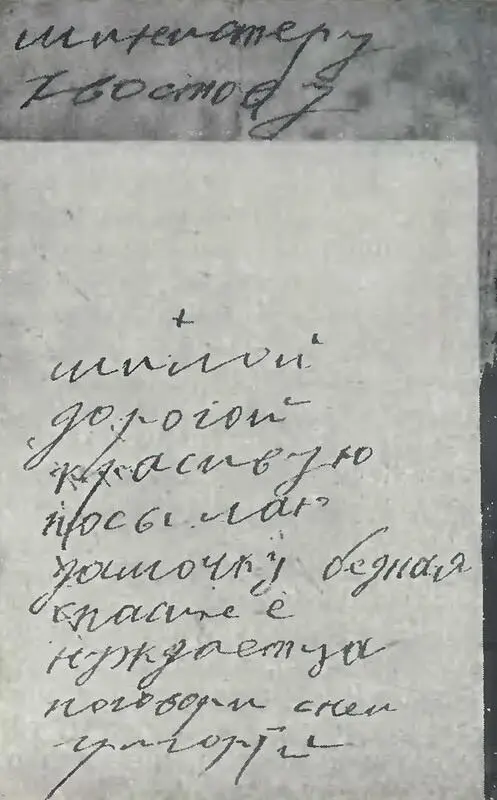 министеру
Хвостову
+
милой
дорогой
красивую
посылаю
дамочку бедная
спаси ее
нуждаетца
поговри сней
григорIи